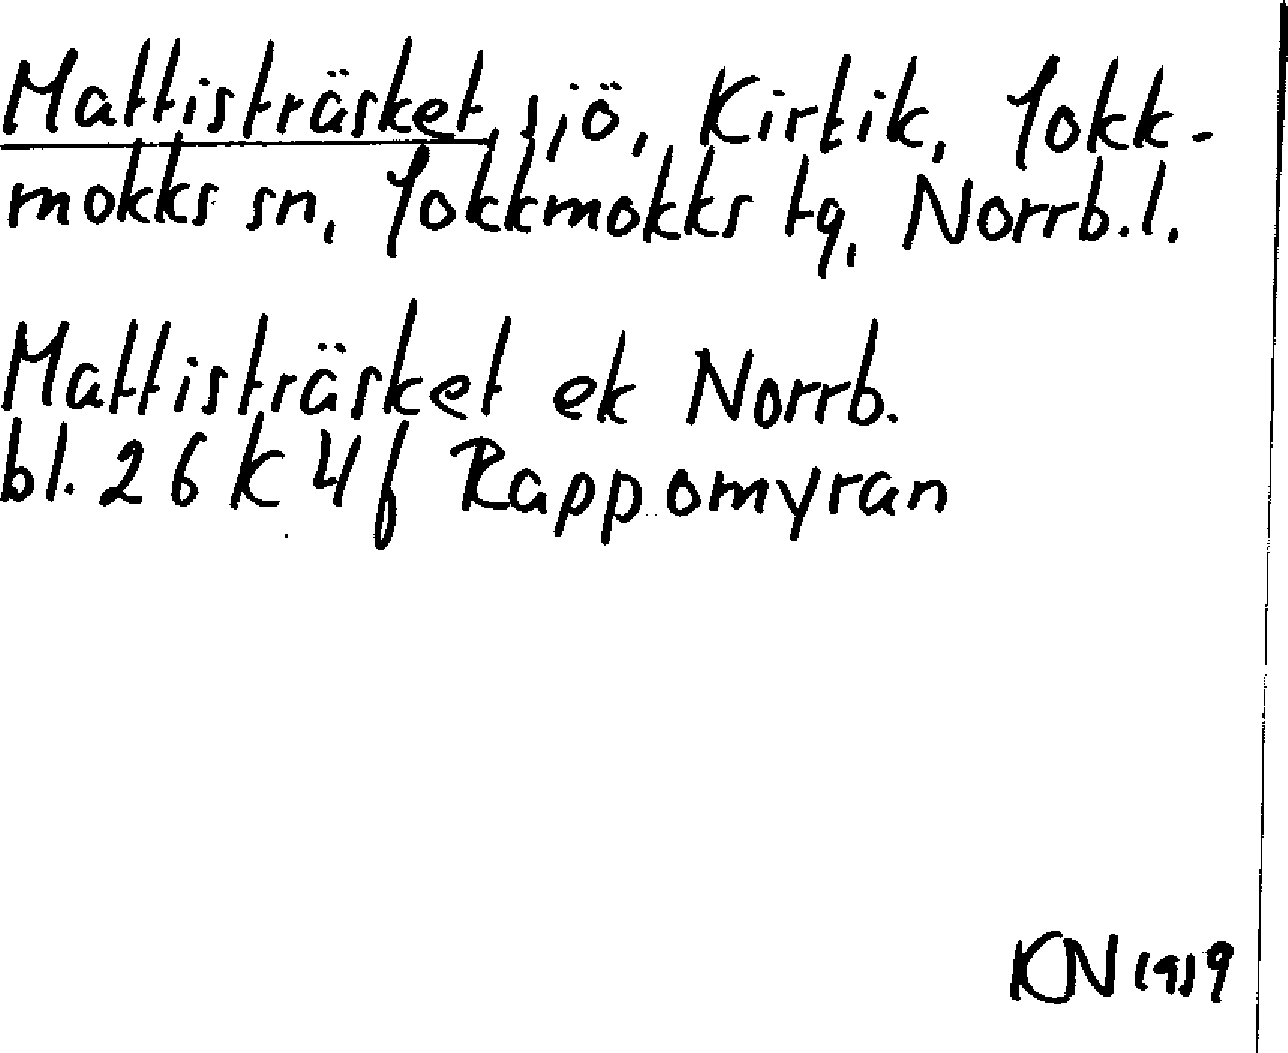 Mattisträsket, sjö, Kirtik, Jokk-
mokks sn, Jokkmokks tg, Norrb.l.
Mattisträsket ek Norrb.
bl. 26 K 4 f Rappomyran
KN 1919